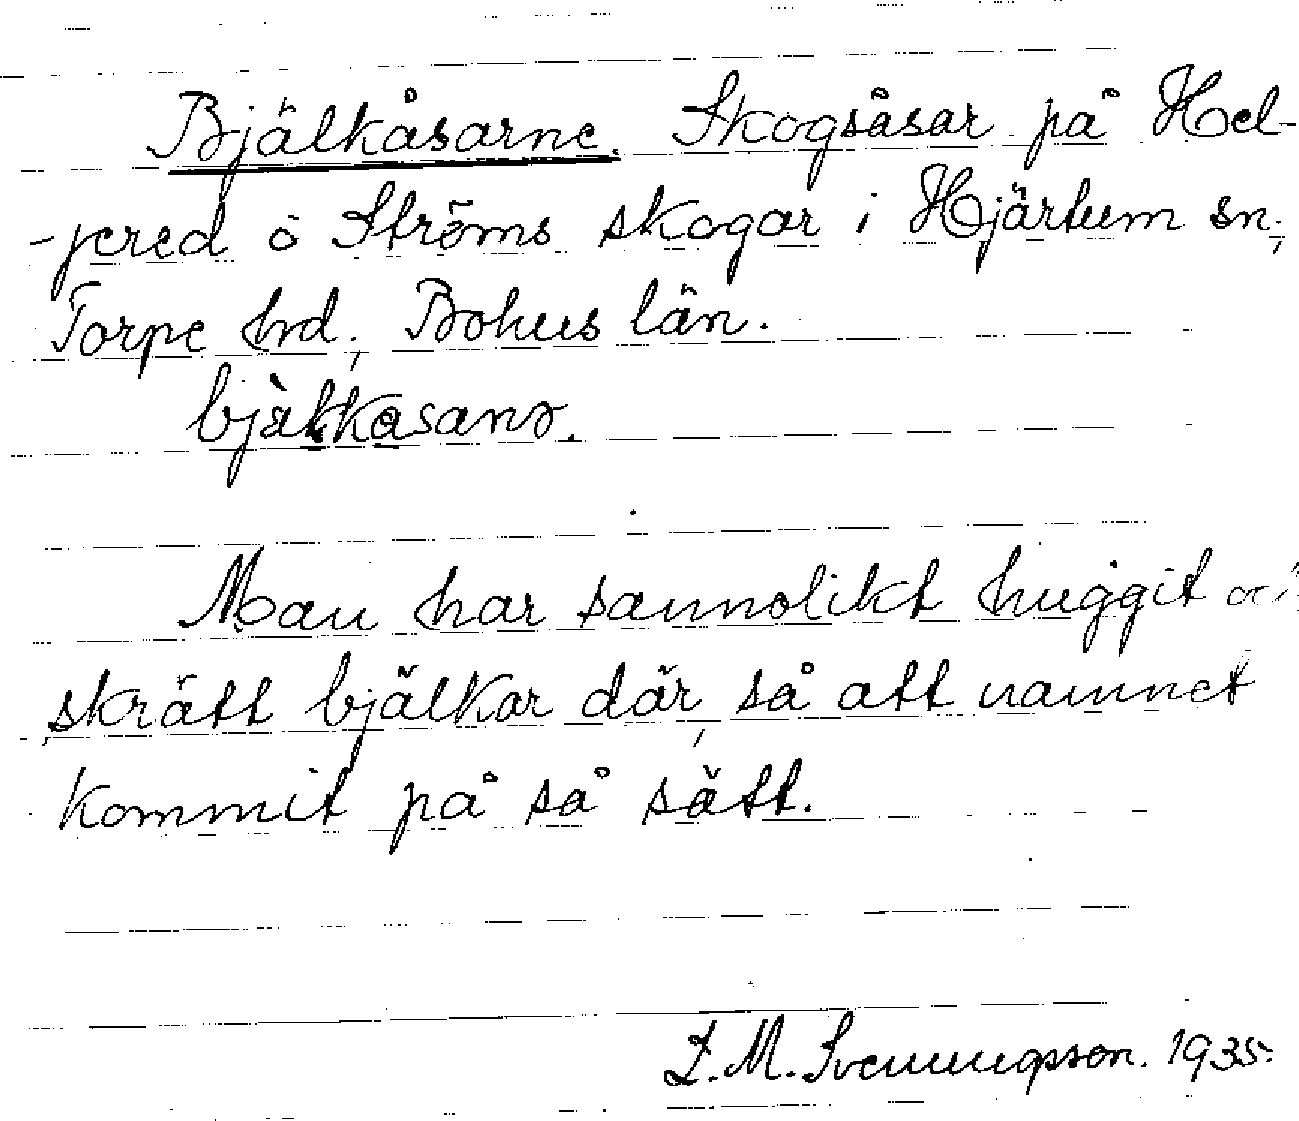 Bjälkåsarne. Skogsåsar på Hel-
-jered o Ströms skogar i Hjärtum sn,
Torpe hrd, Bohus län.
Man har sannolikt huggit
skrätt bjälkar där, så att namnet
kommit på så sätt.
M. Svenungsson. 1935.